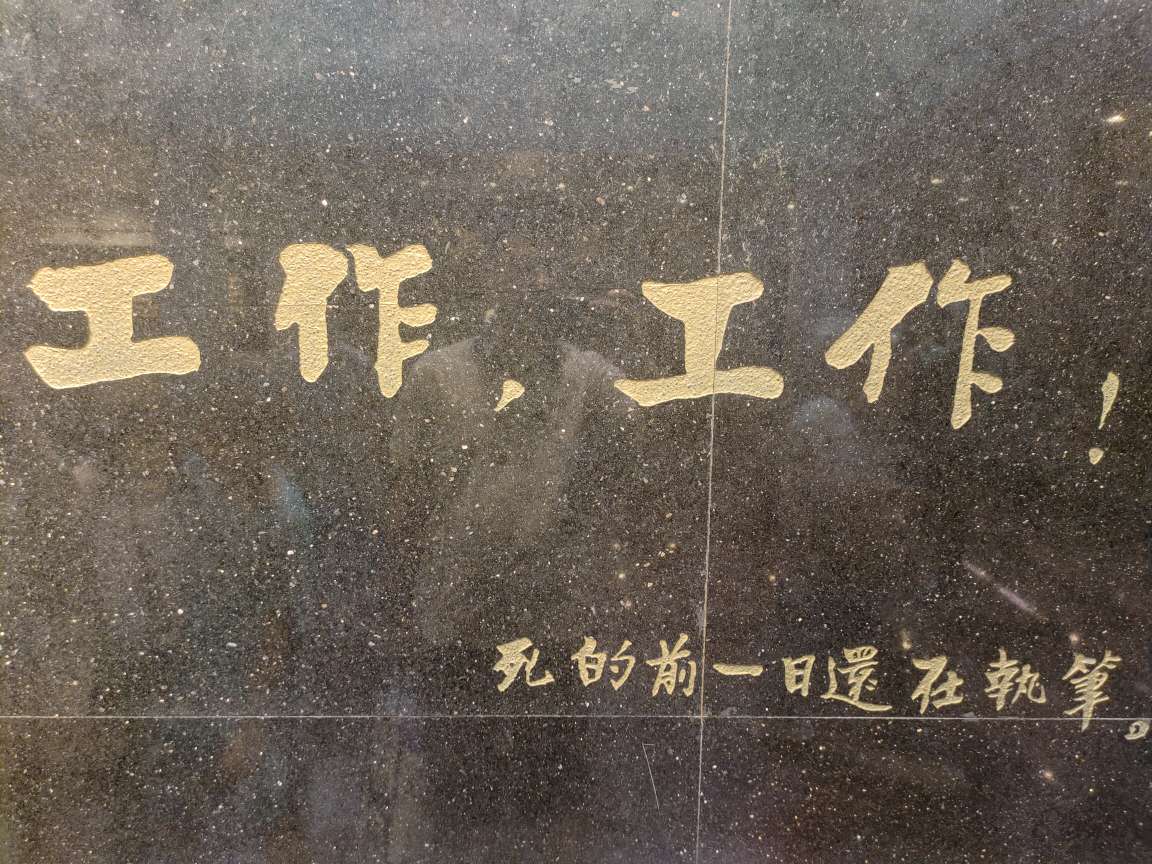 工作，工作！
死的前一日還在執筆。